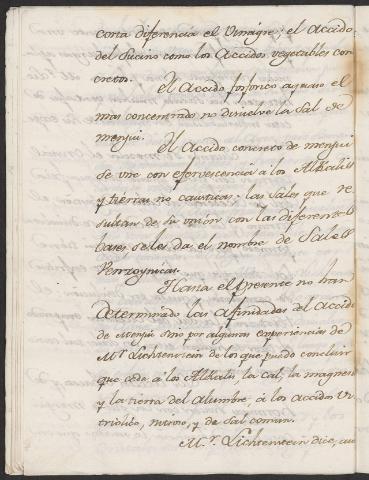 corta diferencia el Vinagre; el Accido
del Sucino como los Accidos vegetables con
cretos.
El Accido fosforico aquoso el
mas concentrado no disuelve la Sal de
menjui.
El Accido concreto de menjui
se une con efervescencia à los Alkalis
y tierras no causticas: las sales que re
sultan de su union con las diferentes
bases seles da el nombre de Sales
Venzoynicas.
Hasta el presente no han
determinado las afinidades del Accido
de Menjui sino por algunas experiencias de
Mr. Lichtenstein de los que puedo concluir
que cede à los Alkalis la cal, la magnesia
y la tierra del alumbre, à los accidos vi
triolico, nitroso, y de Sal comun.
Mr. Lichtenstein dice, que